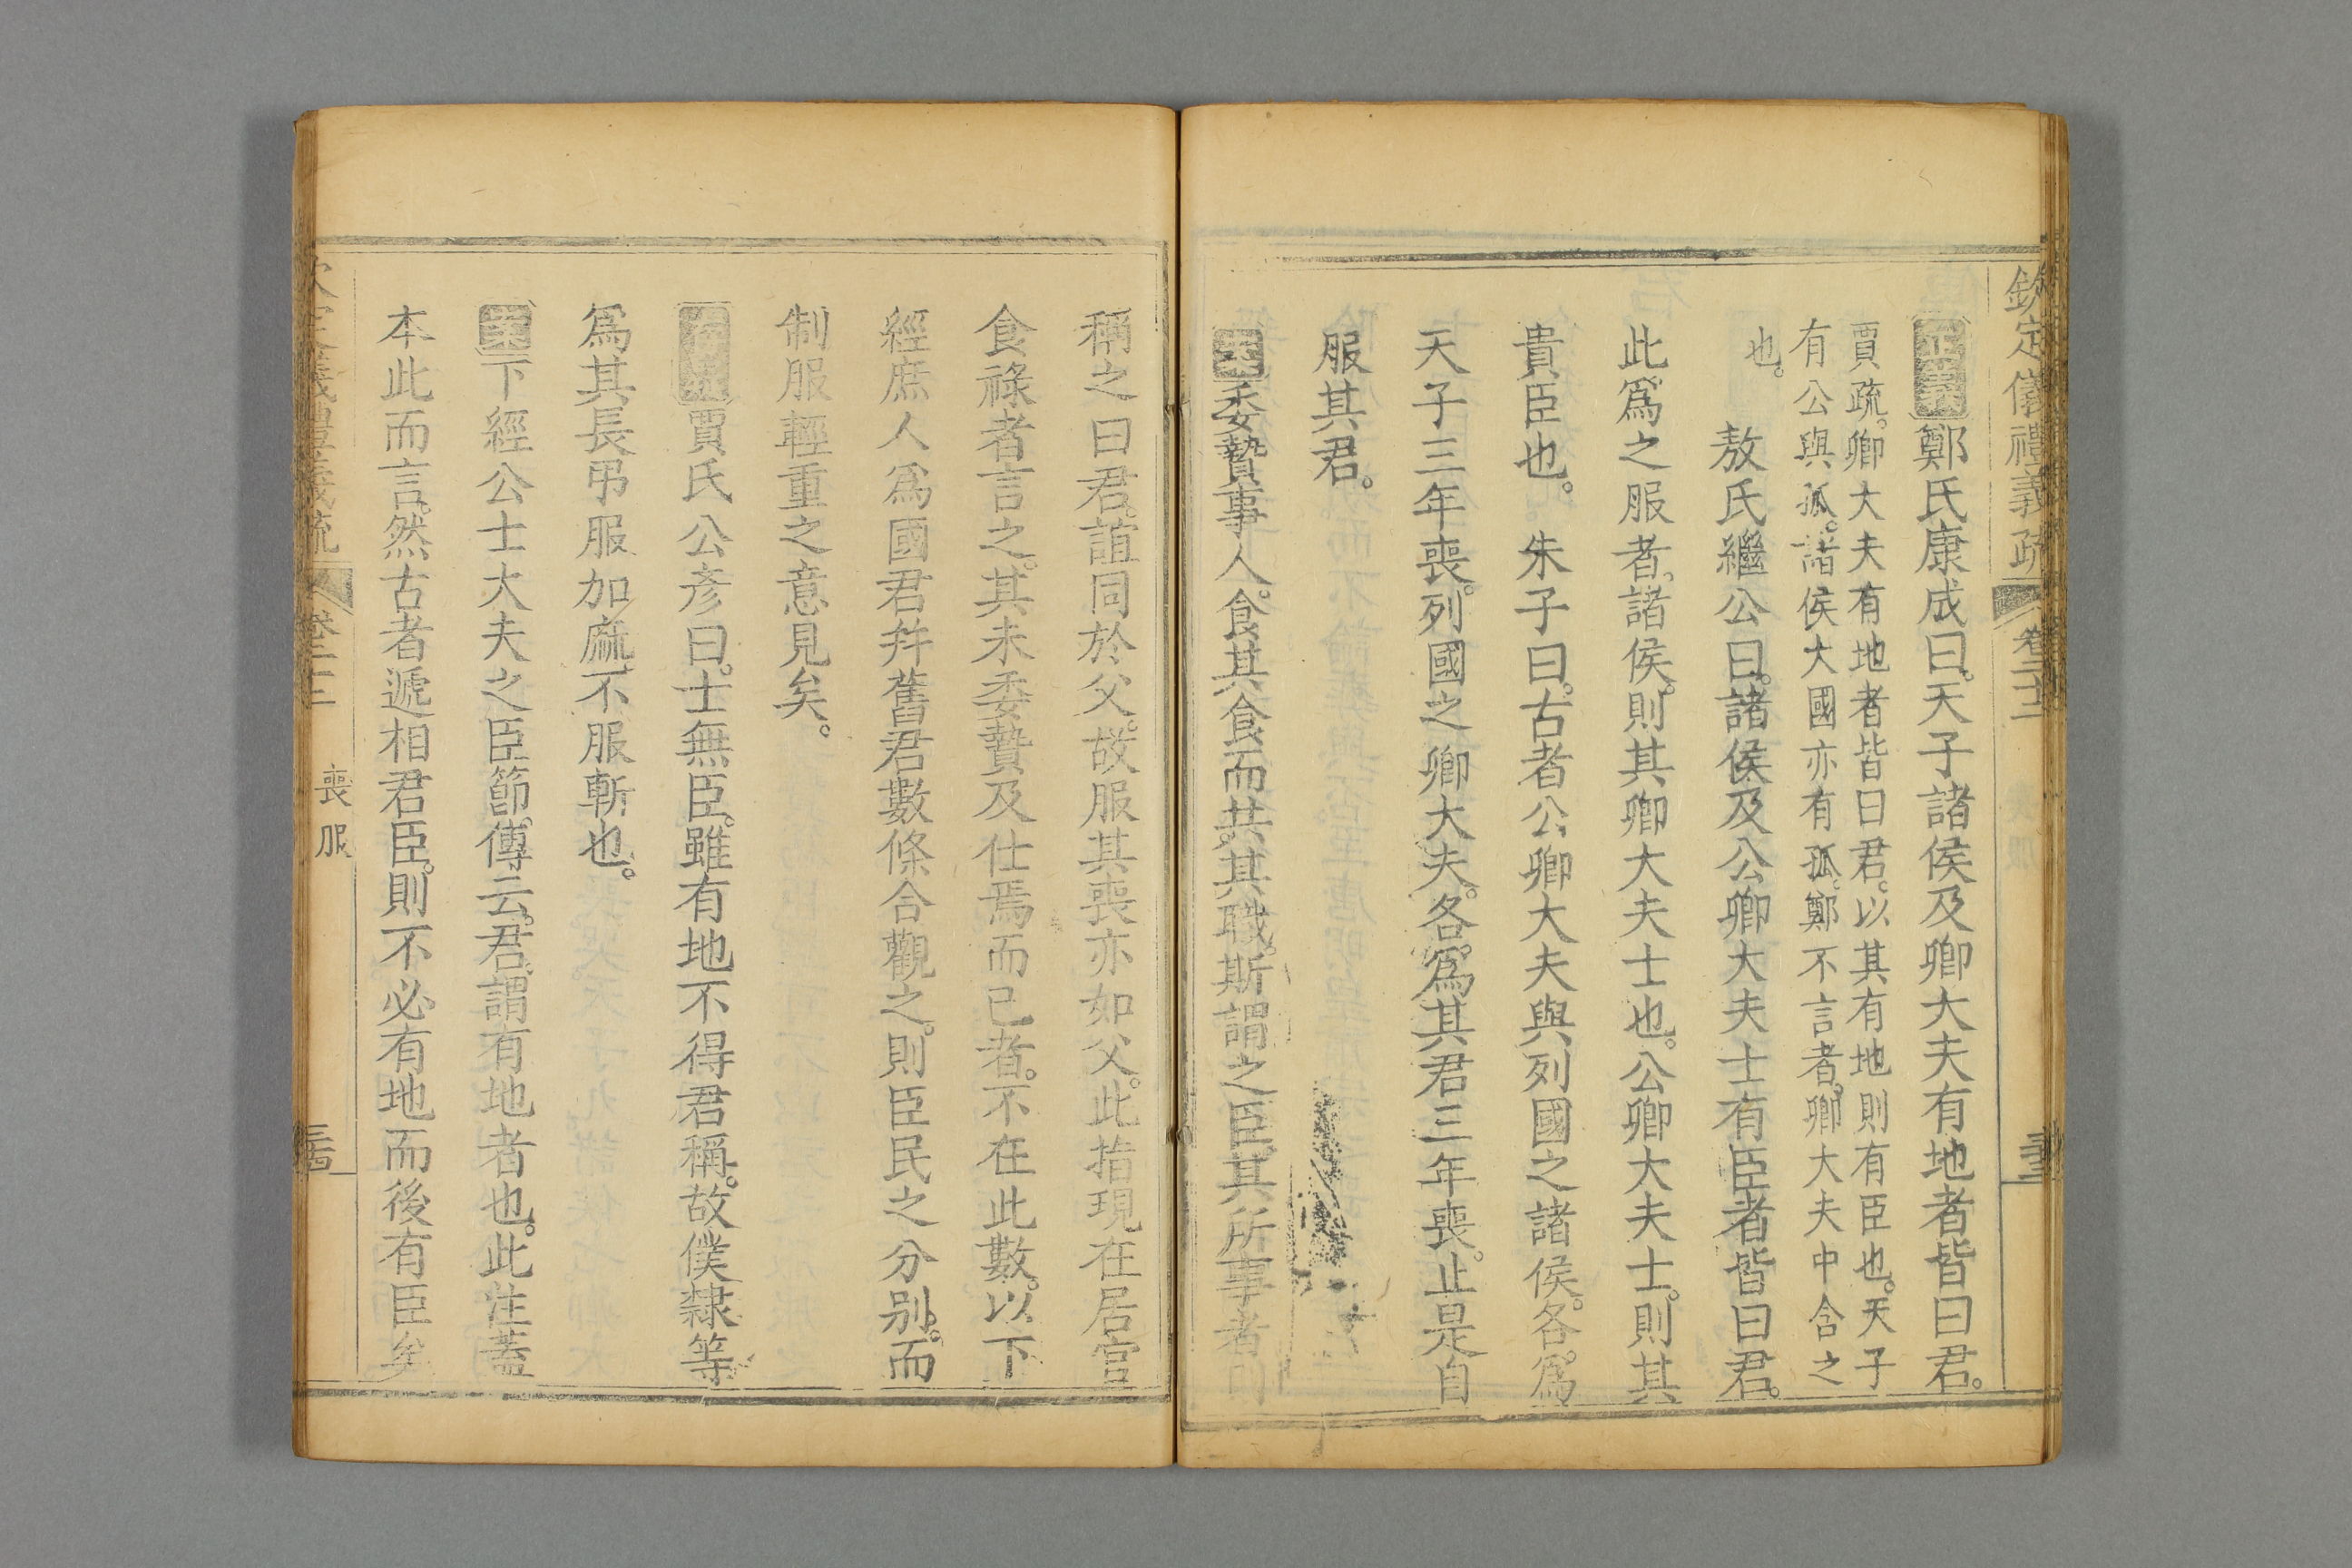 欽定儀禮義疏 卷二十二
正義鄭氏康成曰。天子諸侯及卿大夫有地者皆曰君。
賈疏。卿大夫有地者皆曰君。以其有地則有臣也。天子
有公與孤。諸侯大國亦有孤。鄭不言者。卿大夫中含之
也。
敖氏繼公曰。諸侯及公卿大夫士有臣者皆曰君。
此爲之服者。諸侯。則其卿大夫士也。公卿大夫士。則其
貴臣也。 朱子曰。古者公卿大夫與列國之諸侯。各爲
天子三年喪。列國之卿大夫。各爲其君三年喪。止是自
服其君。
案委贄事人。食其食而共其職。斯謂之臣。其所事者
稱之曰君。誼同於父。故服其喪亦如父。此指現在居官
食祿者言之。其未委贄及仕焉而已者。不在此數。以下
經庶人爲國君幷舊君數條合觀之。則臣民之分别。而
制服輕重之意見矣。
存疑賈氏公彥曰。士無臣。雖有地不得君稱。故僕隸等
爲其長弔服加麻。不服斬也。
案下經公士大夫之臣節。傳云。君。謂有地者也。此注蓋
本此而言。然古者遞相君臣。則不必有地而後有臣矣
欽定儀禮義疏 卷二十二 喪服